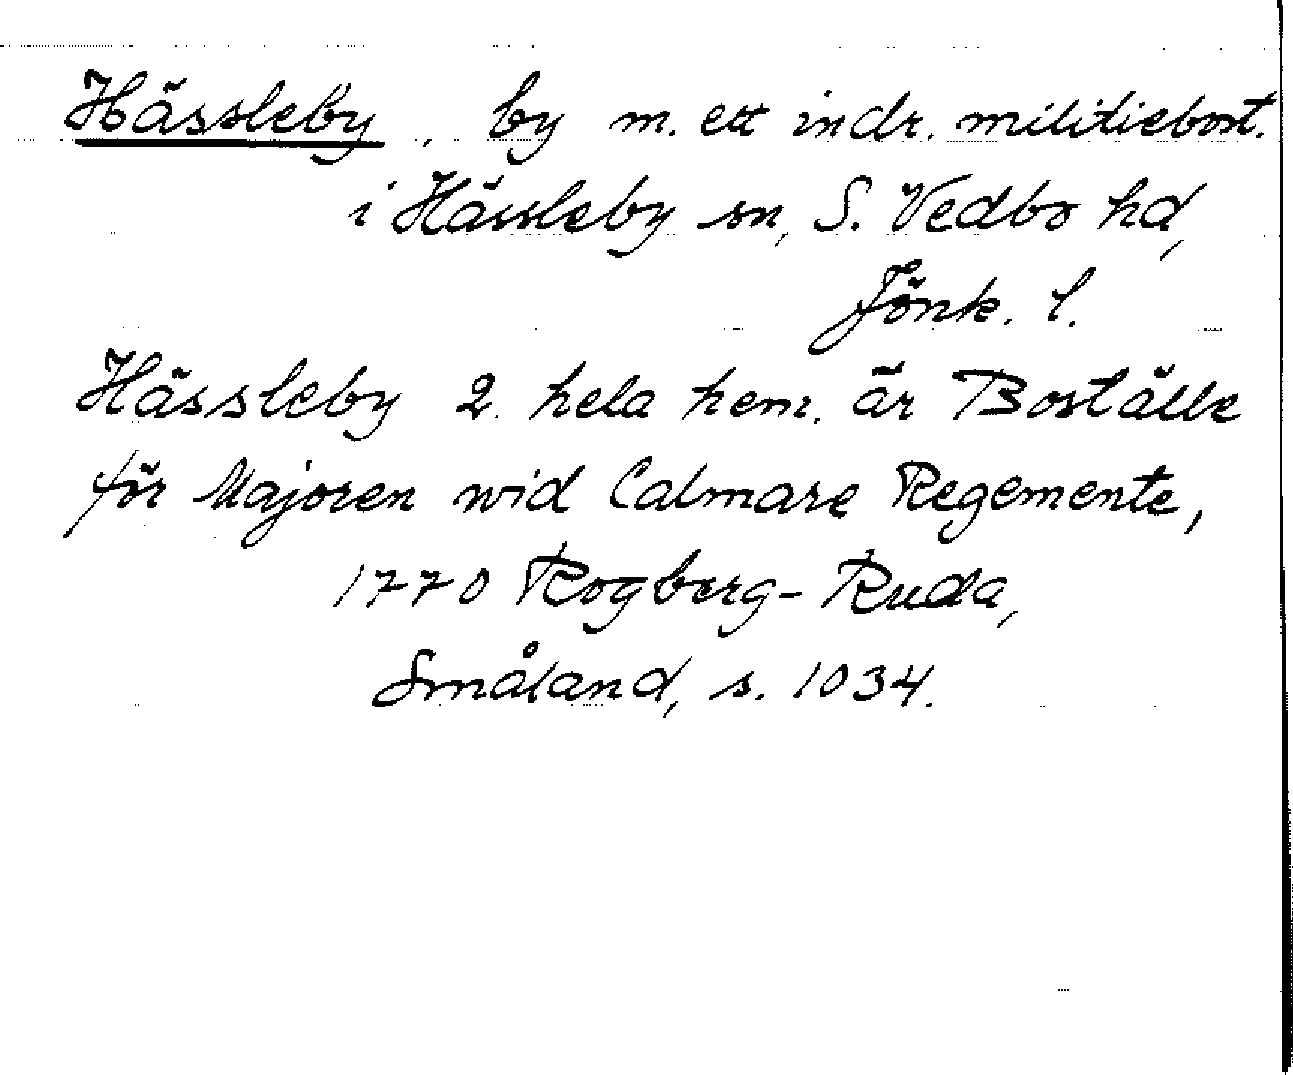 Hässleby, by m. ett indr. militiebost.
i Hässleby sn, S. Vedbo hd,
Jönk. l.
Hässleby 2. hela hem. är Boställe
för Majoren wid Calmare Regemente,
1770 Rogberg-Ruda,
Småland, s. 1034.